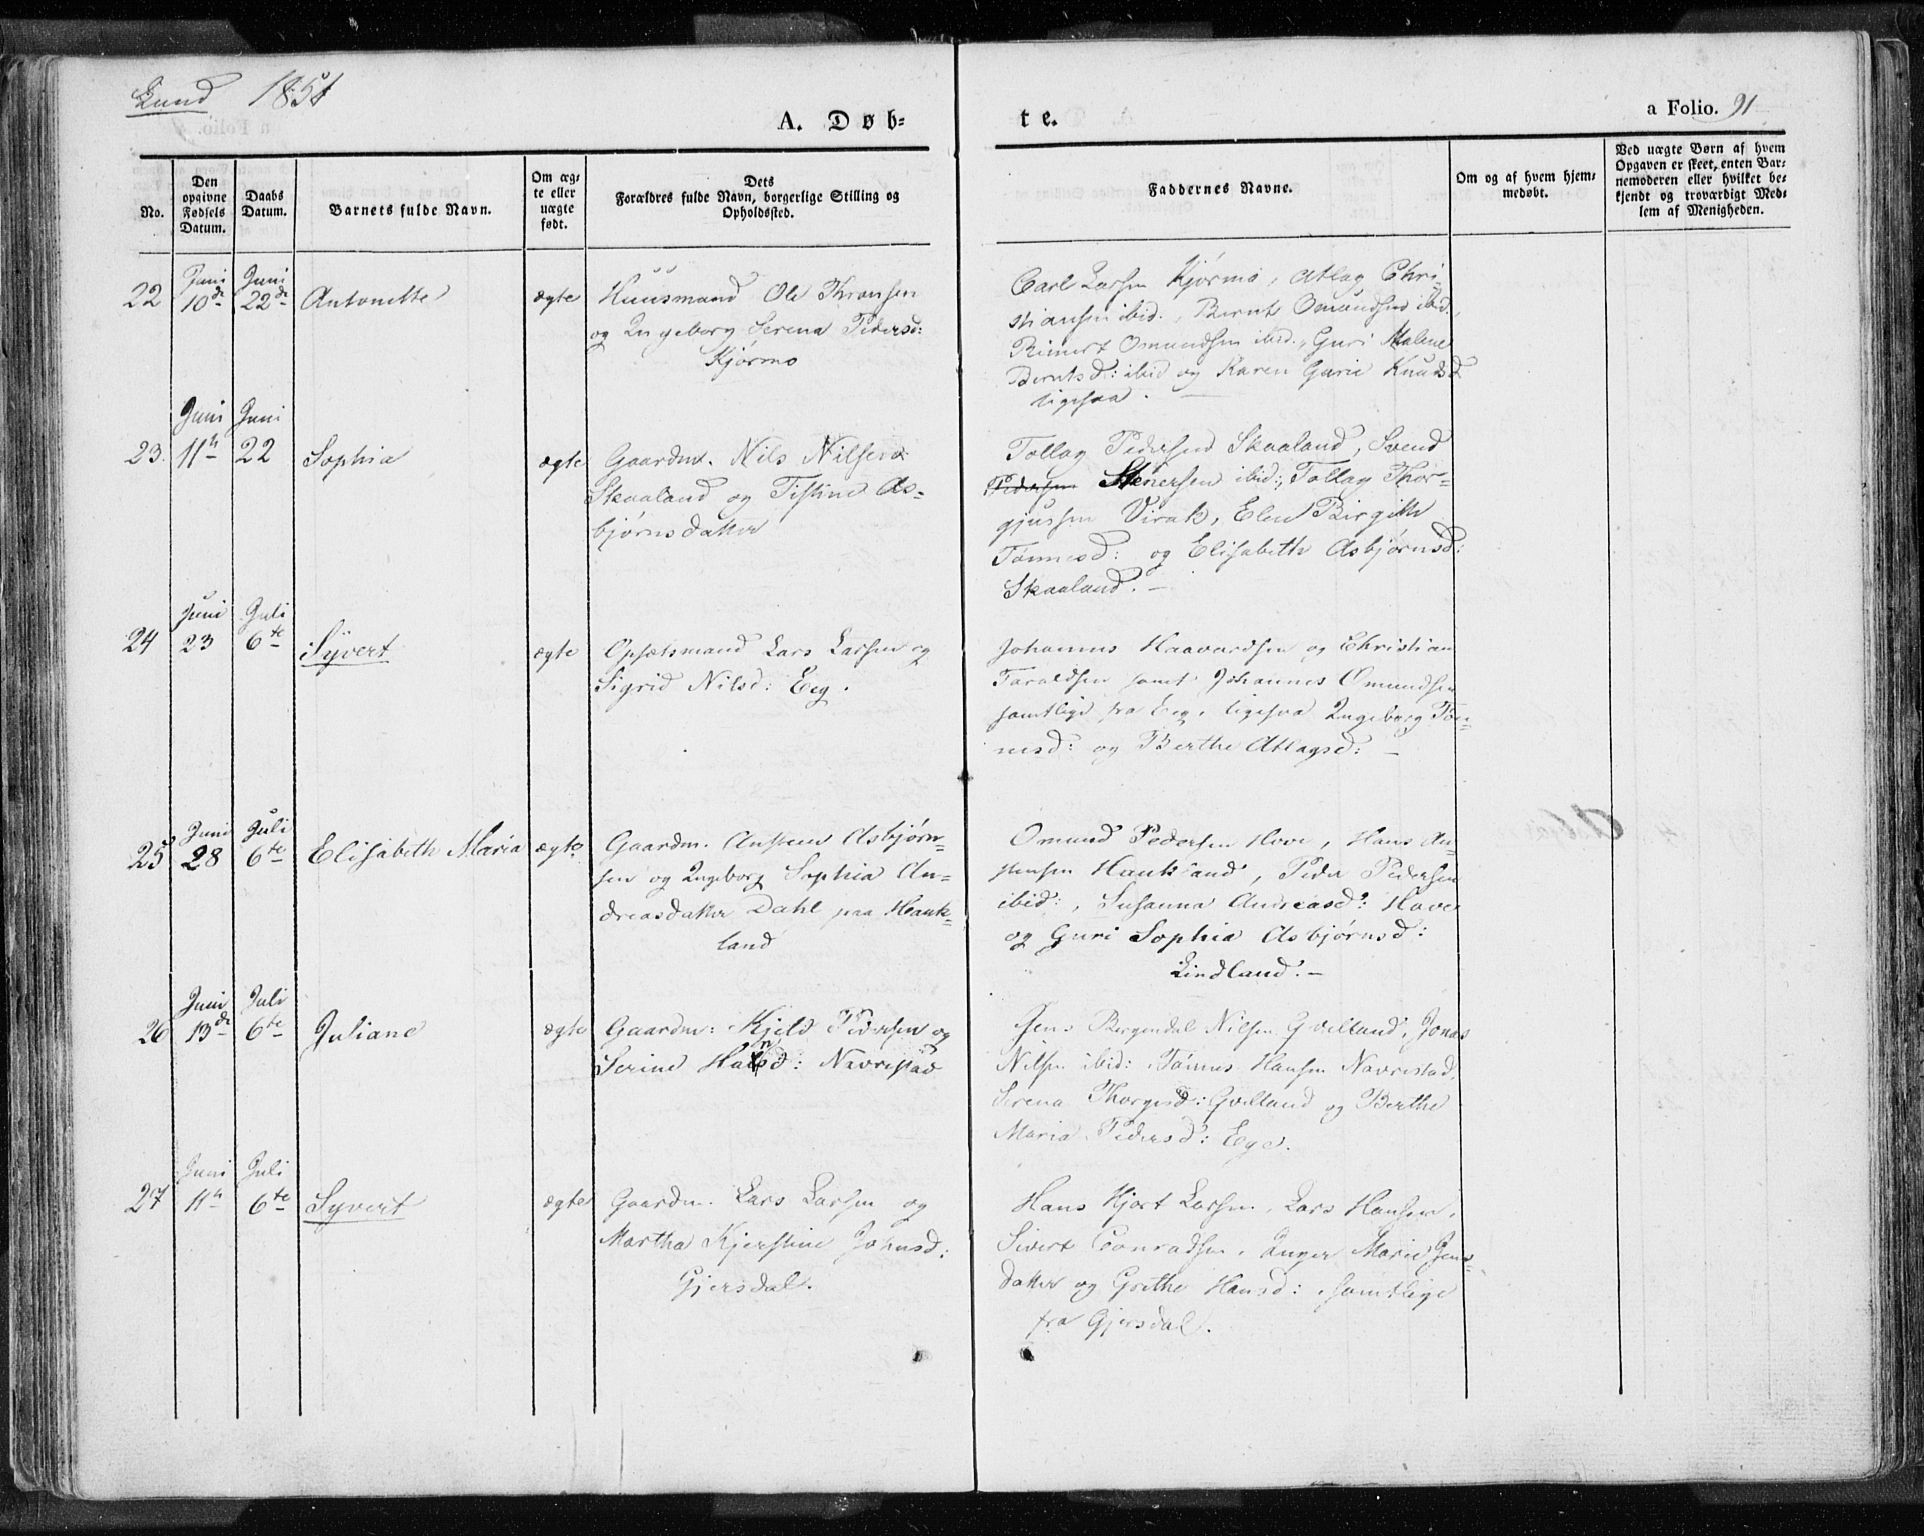 Lund 1851
A. Døb-
te.
a Folio. 91
No.
Den opgivne Fødsels Datum.
Daabs Datum.
Barnets fulde Navn.
Om æg-
te eller
uægte
født.
Dets
Forældres fulde Navn, borgerlige Stilling og
Opholdssted.
Faddernes Navne.
Om og af hvem hjem-
medøbt.
Ved uægte Børn af hvem
Opgaven er skeet, enten Bar-
nemoderen eller hvilket be-
kjendt og troværdigt Med-
lem af Menigheden.
22 Juni 10de Juni 22de Antonette ægte
Huusmand Ole Thronsen
og Ingeborg Serena Pedersd:
Kjørmo
Carl Larsen Kjørmo, Atlag Chri-
stiansen ibid., Bernt Omundsen ibid.,
Reinert Omundsen ibid., Guri Malene
Berntsd: ibid og Karen Gurie Knudsd
ligesaa.
23. Juni 11te Juni 22 Sophia ægte
Gaardm. Nils Nilsen
Skaaland og Tistine As-
bjørnsdatter
Tollag Pedersen Skaaland, Svend
Pedersen Stenersen ibid:, Tollag Thor-
gjussen Virak, Elen Birgitte
Tønnesd: og Elisabeth Asbjørnsd:
Skaaland. —
24 Juni 23 Juli 6te Syvert ægte
Opsætsmand Lars Larsen og
Sigrid Nilsd: Eeg.
Johannes Haavardsen og Christian
Taraldsen samt Johannes Omundsen
samtlige fra Eeg, ligesaa Ingeborg Tøn-
nesd: og Berthe Atlagsd: —
25 Juni 28 Juli 6te Elisabeth Maria ægte
Gaardm. Austen Asbjørn-
sen og Ingeborg Sophia An-
dreasdatter Dahl paa Hauk-
land
Omund Pedersen Hove, Hans Au-
stensen Haukland, Peder Pedersen
ibid:, Susanna Andreasd: Hove
og Guri Sophia Asbjørnsd:
Lindland. —
26 Juni 13de Juli 6te Juliane ægte
Gaardm: Kjeld Pedersen og
Serine Hansd: Navrestad
Jens Bergendal Nilsen Gvelland, Jonas
Nilsen ibid: Tønnes Hansen Navrestad,
Serena Thorgesd: Gvelland og Berthe
Maria Pedersd: Ege.
27 Juni 11te Juli 6te Syvert ægte
Gaardm. Lars Larsen og
Martha Kjerstine Johnsd:
Gjersdal.
Hans Hjort Larsen, Lars Hansen,
Sivert Conradsen, Inger Marie Jens-
datter og Grethe Hansd: samtlige
fra Gjersdal.